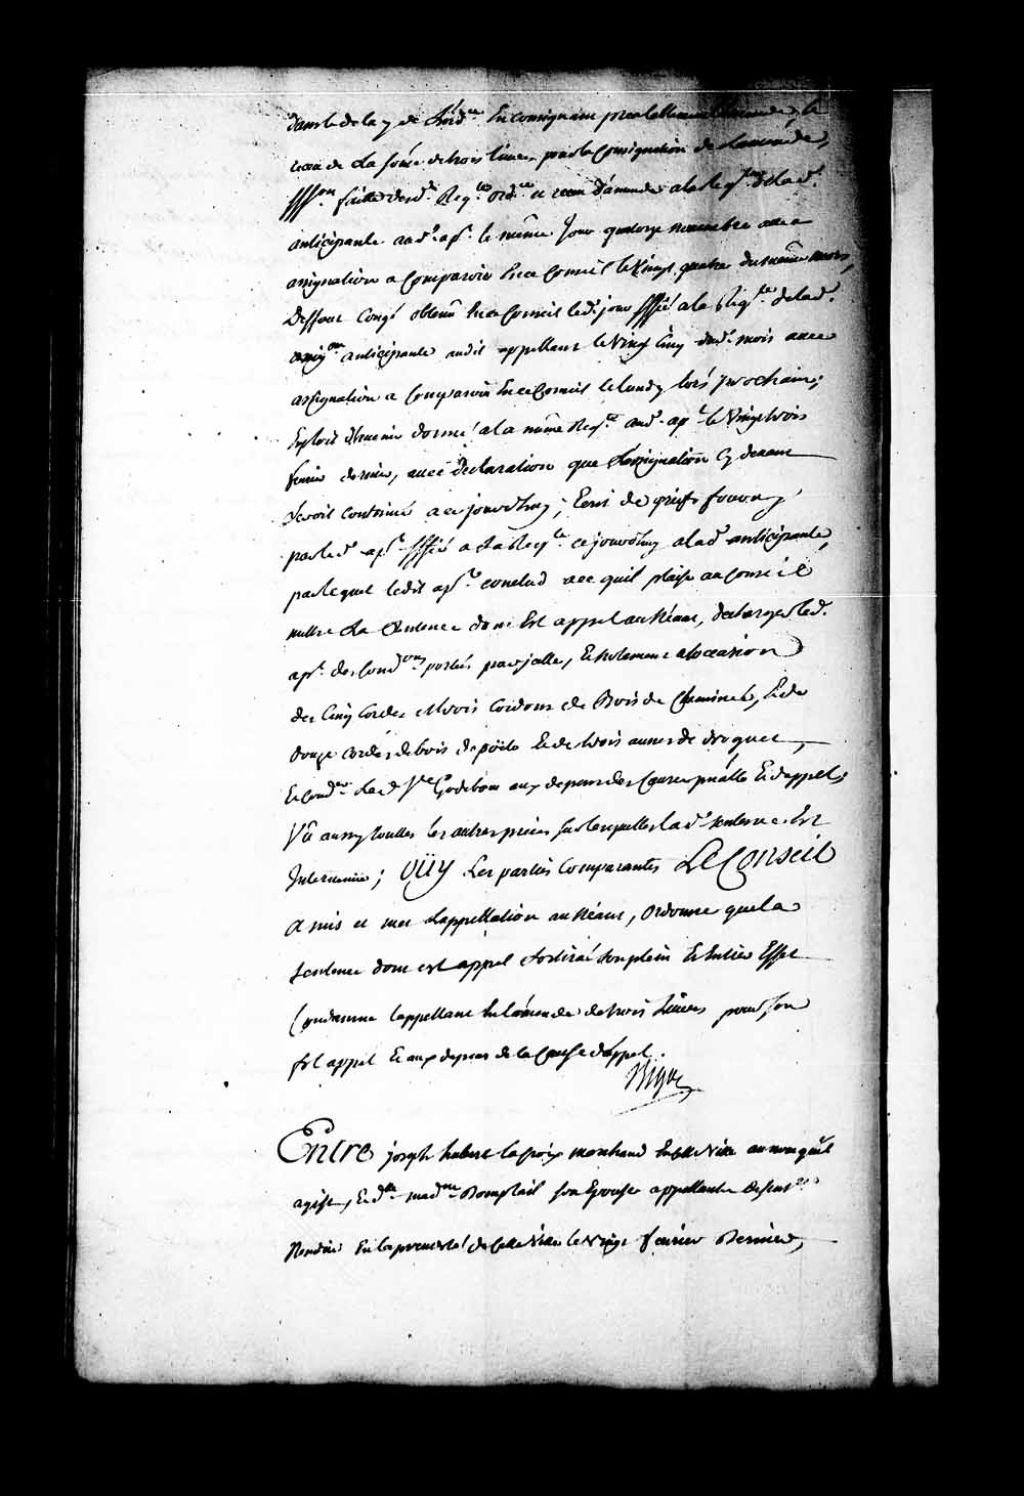 dans le delay de l'ord.ce En consignant prealablement l'amende, le
recu de La somme de trois livres pour la Consignation de L'amende,
faitte desd. Req.te ord.ce et recu d'amende a la Req.te de lad.
anticipante aud. ap.t le même Jour quatorze novembre avec
assignation a Comparoir En ce Conseil le Vingt quatre du même mois,
Deffaut Congé obtenu En ce Conseil led. jour signiffié a la Req.te de lad.
anticipante audit appellant le Vingt Cinq dud. mois avec
assignation a Comparoir En ce Conseil le lundy lors prochain;
Exploit d'avenir donné a la même Req.te aud. ap.t le Vingt trois
fevrier dernier, avec declaration que L'assignation cy devant
seroit continué a ce jourd'huy; Ecrit de griefs fourny
par led. ap.t signiffié a sa Req.te ce jourd'huy a lad. anticipante,
par lequel ledit ap.t conclud a ce qu'il plaise au Conseil
mettre La Sentence dont Est appel au Néant, decharger led.
ap.t des Cond.ons portés par jcelle, Et notament a l'occasion
des Cinq Cordes et trois Cordons de Bois de Cheminée, Et de
douze cordes de bois de poële Et de trois aunes de droguet,
Et Cond.er Lad. V.e Godebout aux depens des Causes p.alle Et d'appel;
Vû aussy touttes les autres pieces sur lesquelles lad. sentence Est
Intervenüe; OÜY Les parties Comparantes LE Conseil
a mis et met L'appellation au Néant, Ordonne que La
sentence dont est appel sortira son plein Et Entier Effet
Condamne l'appellant En L'amende de trois Livres pour son
fol appel Et aux depens de la Cause d'appel.
Bigot
Entre joseph hubert la croix marchand En cette Ville au nom qu'il
agist, Et d.lle mad.ne Domptail son Epouse appellants de sent.ce
Rendüe En la prevosté de Cette Ville le Vingt fevrier Dernier,